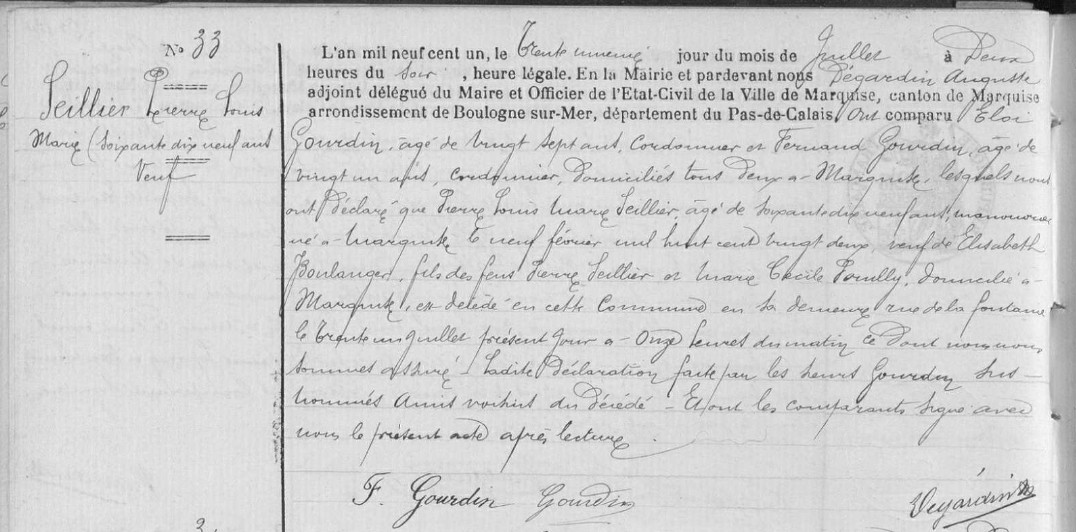 N° 33
Seillier Pierre Louis
Marie (soixante dix neuf ans
Veuf
L'an mil neuf cent un, le trente unième jour du mois de Juillet à Deux
heures du soir, heure légale. En la Mairie et pardevant nous Dégardin Auguste
adjoint délégué du Maire et Officier de l'Etat-Civil de la Ville de Marquise, canton de Marquise
arrondissement de Boulogne sur-Mer, département du Pas-de-Calais, Ont comparu Eloi
Gourdin, âgé de vingt sept ans, Cordonnier et Fernand Gourdin, âgé de
vingt un ans, cordonnier, Domiciliés tous deux à Marquise, lesquels nous
ont Déclaré que Pierre Louis Marie Seillier, âgé de soixante dix neuf ans, manouvrier
né à Marquise le neuf février mil huit cent vingt deux veuf de Elisabeth
Boulanger, fils des feus Pierre Seillier et Marie Cécile Pouilly, domicilié à
Marquise, est décédé en cette commune en sa demeure rue de la fontaine
le trente un juillet présent jour à onze heures du matin ce dont nous nous
sommes assuré - Ladite Déclaration faite par les sieurs Gourdin sus
nommés amis voisins du Décédé - Et ont les comparants signé avec
nous le présent acte après lecture.
F. Gourdin Gourdin Degardin